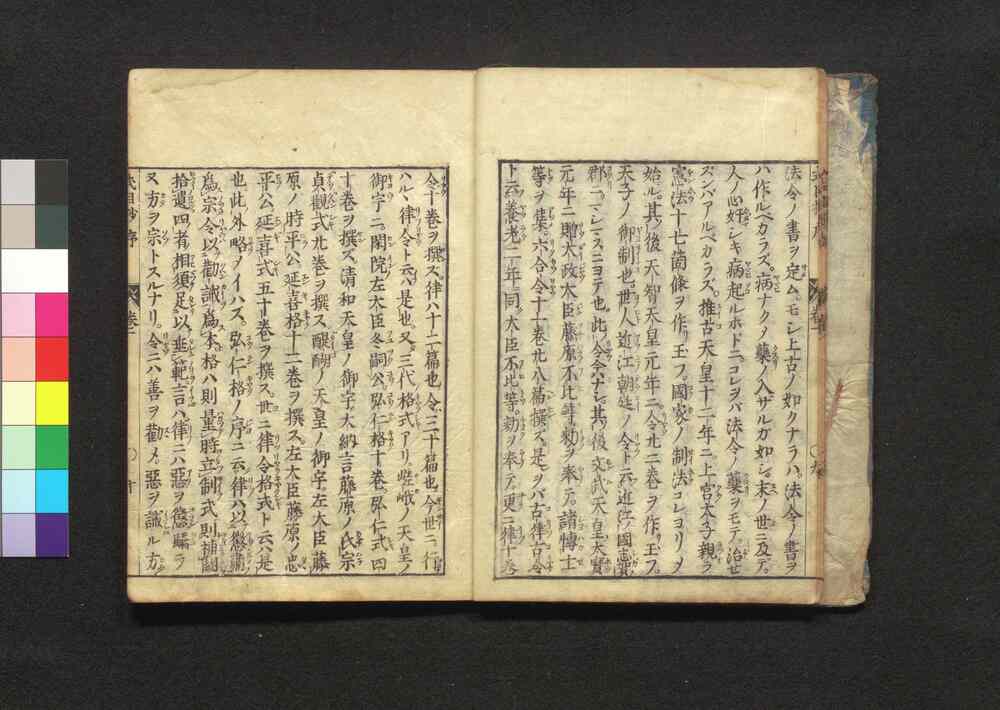 法令ノ書ヲ定ム。モシ上古ノ如クナラハ。法令ノ書ヲ
ハ作ルベカラズ。病ナクノ藥ノ入サルガ如シ。末ノ世ニ及テ。
人ノ心奸シキ病起ルホドニ。コレヲバ法令ノ藥ヲモテ。治セ
ズンバアルベカラズ。推古天皇十二年ニ上宮太子親ラ
憲法十七箇條ヲ作リ玉フ。國家ノ制法コレヨリメ
始ル。其後天智天皇元年ニ令廿二巻ヲ作リ玉フ。
天子ノ御制也。世人近江朝廷ノ令ト云。近江ノ國志賀ノ
郡ニマシマスニヨテ也。此ノ令今ナシ。其後文武天皇大寳
元年ニ贈太政大臣藤原不比等勅ヲ奉テ。諸博士
等ヲ集。六合令十一巻廿八篇撰ズ。是ヲバ古律古令
ト云。養老二年。同ノ大臣不比等。勅ヲ奉テ。更ニ律十巻
令十巻ヲ撰ズ。律ハ十二篇也。令ハ三十篇也。今世ニ行
ハル丶律令ト云ハ是也。又三代格式アリ。嵯峨ノ天皇ノ
御宇ニ閑院左大臣冬嗣公弘仁格十巻。弘仁式四
十巻ヲ撰ズ。清和天皇ノ御宇大納言藤原ノ氏宗
貞觀式廿巻ヲ撰ス。醍醐ノ天皇ノ御宇左大臣藤
原ノ時平公延喜格十二巻ヲ撰ス。左大臣藤原ノ忠
平公延喜式五十巻ヲ撰ス。世ニ律令格式ト云ハ是
也。此外略ノイハス。弘仁格ノ序ニ云。律ハ以懲肅
爲宗令以勸誡爲本格ハ則量時立制式則補闕
拾遺四者相須足以垂範言ハ律ニハ惡ヲ懲肅ヲ
又方ヲ宗トスルナリ。令ニハ善ヲ勸メ。惡ヲ誡ル方
序 巻一